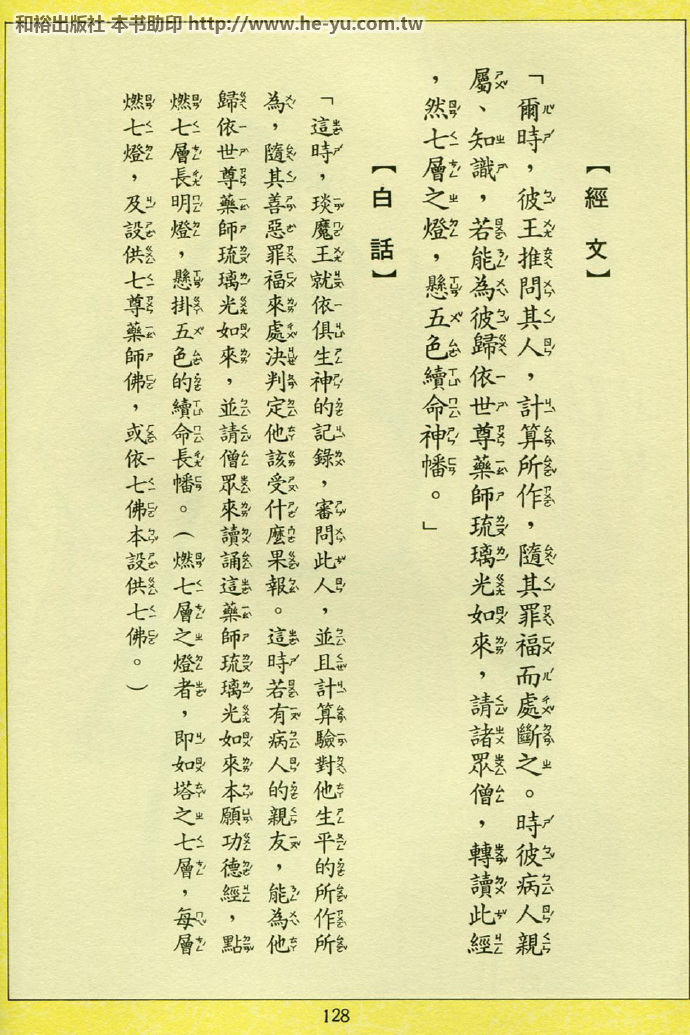 和裕出版社 本书助印 http://www.he-yu.com.tw
【經文】
「爾時，彼王推問其人，計算所作，隨其罪福而處斷之。時彼病人親
屬、知識，若能為彼歸依世尊藥師琉璃光如來，請諸眾僧，轉讀此經
，然七層之燈，懸五色續命神幡。」
【白話】
「這時，琰魔王就依俱生神的記錄，審問此人，並且計算驗對他生平的所作所
為，隨其善惡罪福來處決判定他該受什麼果報。這時若有病人的親友，能為他
歸依世尊藥師琉璃光如來，並請僧眾來讀誦這藥師琉璃光如來本願功德經，點
燃七層長明燈，懸掛五色的續命長幡。（燃七層之燈者，即如塔之七層，每層
燃七燈，及設供七尊藥師佛，或依七佛本設供七佛。）
128